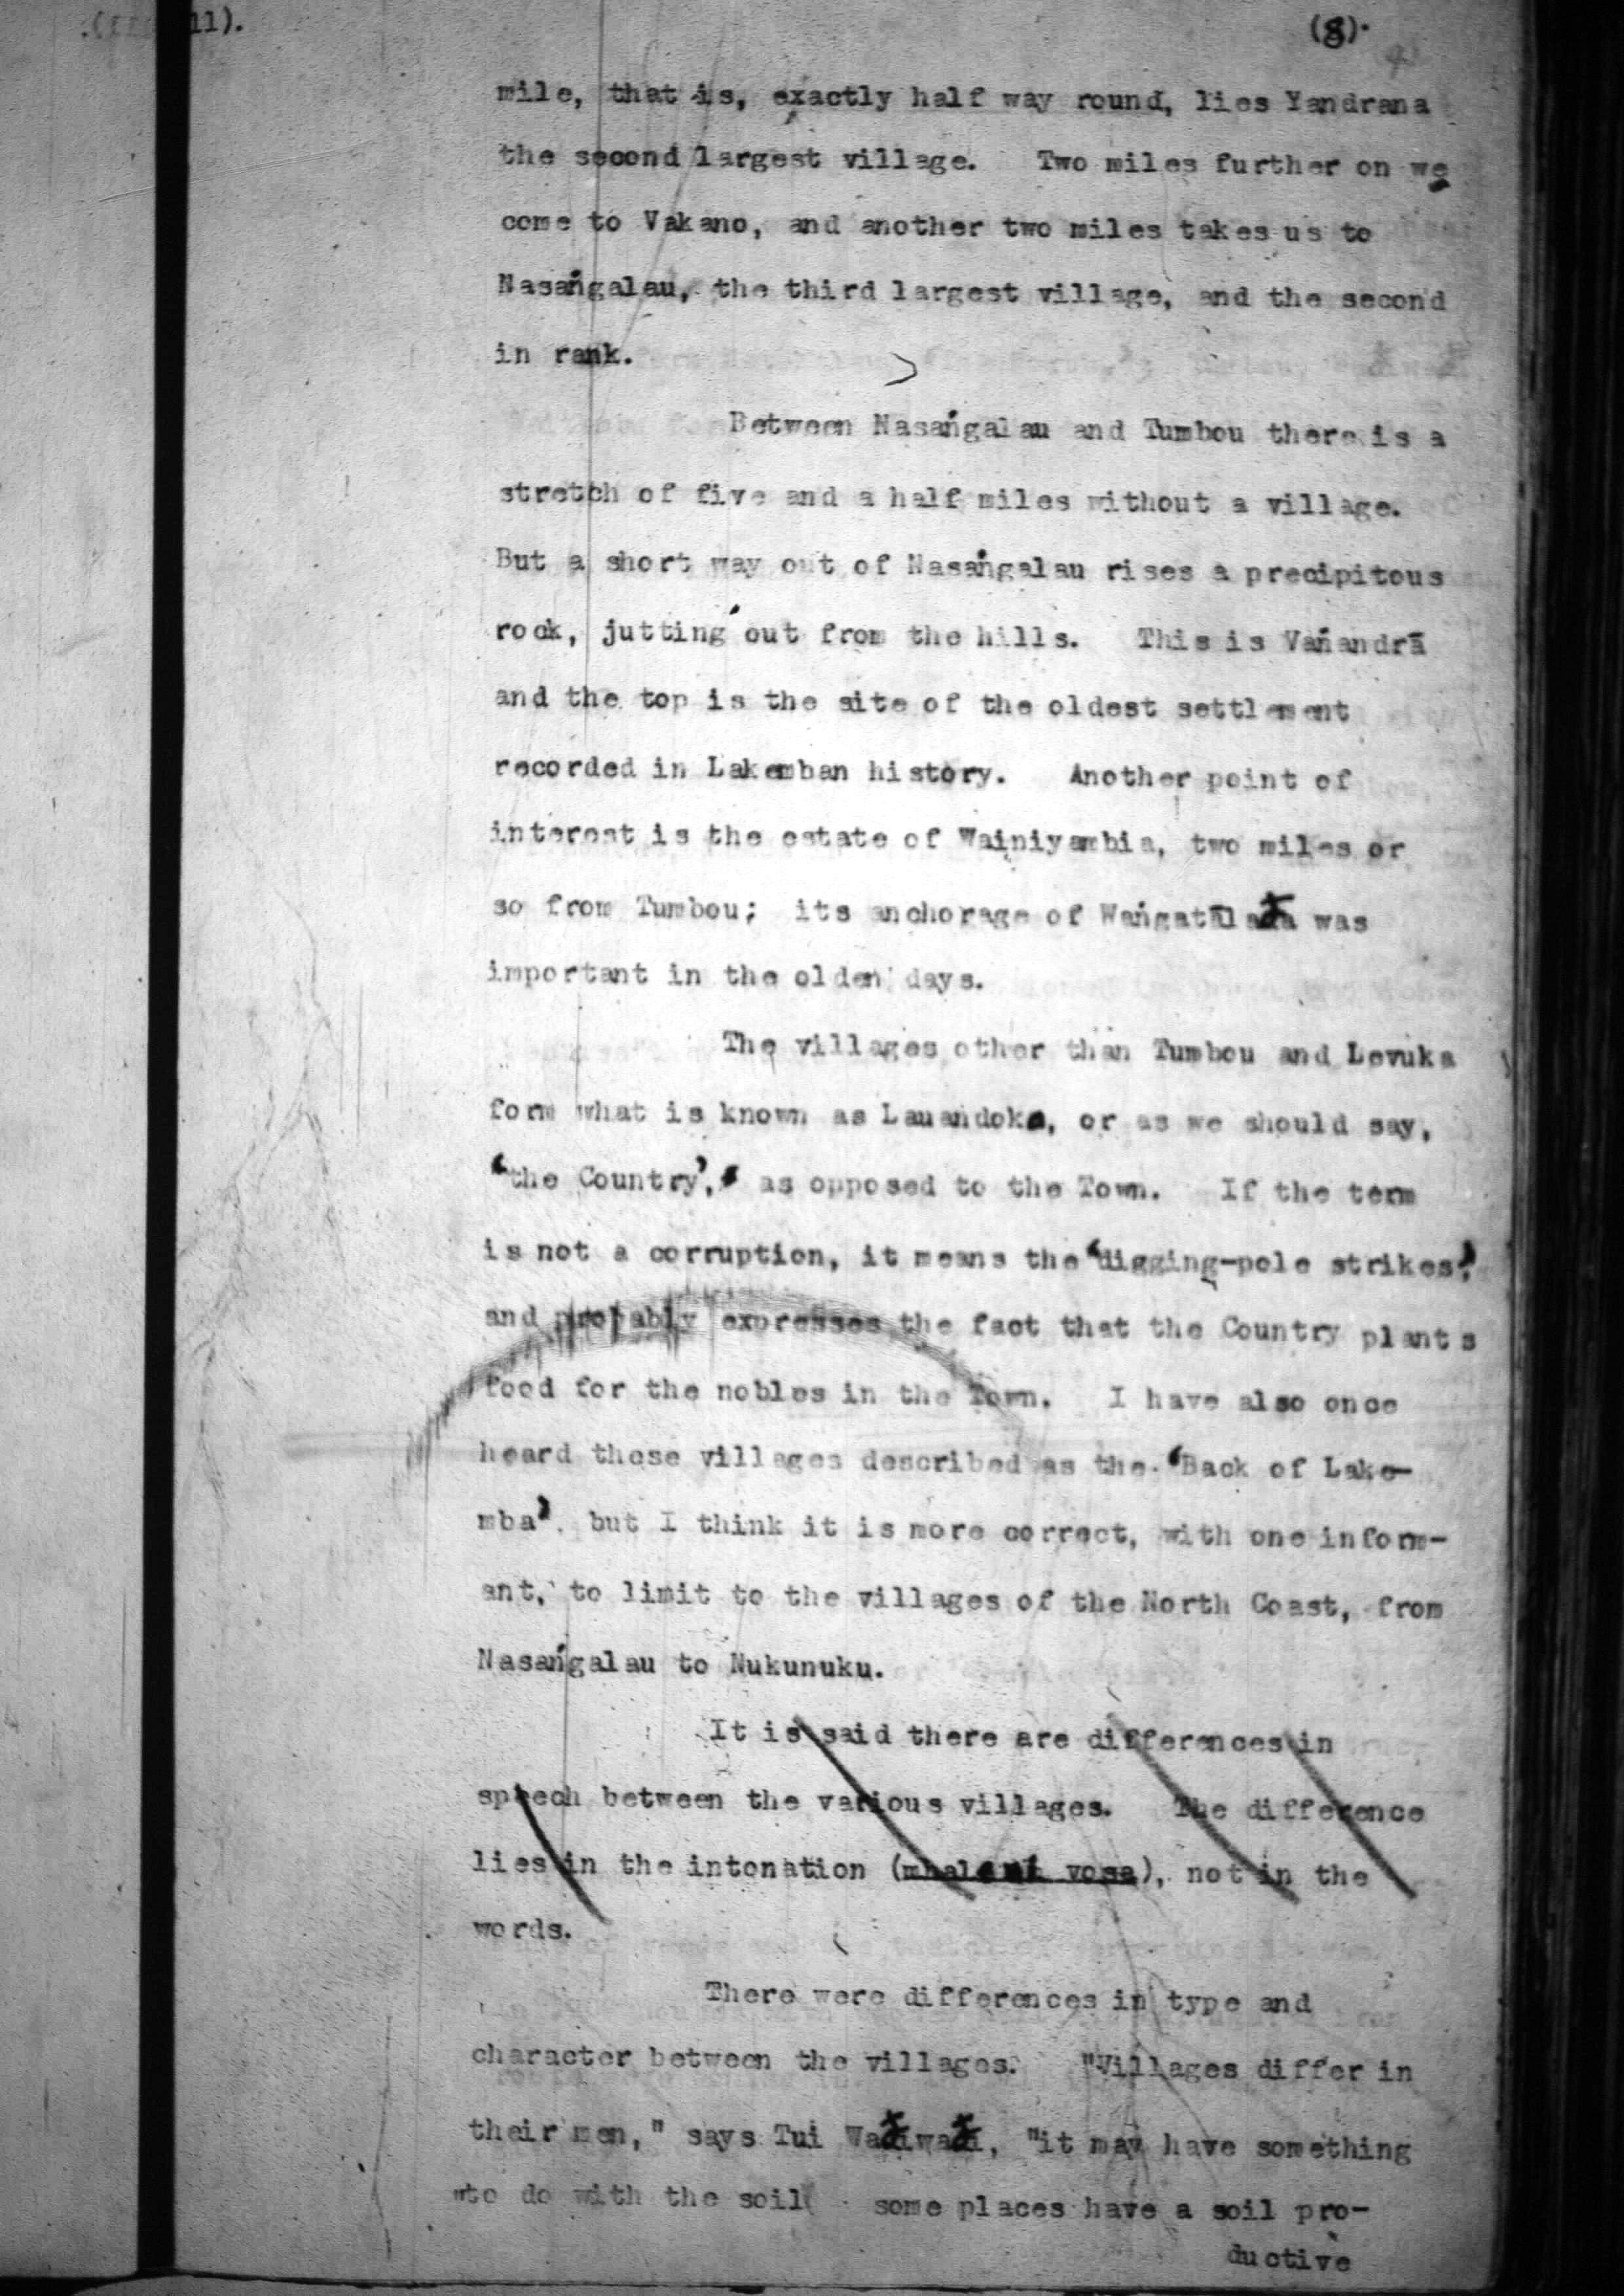 11).
(8).
mile, that is, exactly half way round, lies Yandrana
the second largest village. Two miles further on we
come to Vakano, and another two miles takes us to
Nasaṅgalau, the third largest village, and the second
in rank.
Between Nasaṅgalau and Tumbou there is a
stretch of five and a half miles without a village.
But a short way out of Nasaṅgalau rises a precipitous
rock, jutting out from the hills. This is Vaṅandrā
and the top is the site of the oldest settlement
recorded in Lakemban history. Another point of
interest is the estate of Wainiyambia, two miles or
so from Tumbou; its anchorage of was
important in the olden days.
The villages other than Tumbou and Levuka
form what is known as Lauandoka, or as we should say,
‘the Country’, as opposed to the Town. If the term
is not a corruption, it means the ‘digging-pole strikes’,
and probably expresses the fact that the Country plants
food for the nobles in the Town. I have also once
heard those villages described as the ‘Back of Lake-
mba’, but I think it is more correct, with one inform-
ant, to limit to the villages of the North Coast, from
Nasaṅgalau to Nukunuku.
It is said there are differences in
speech between the various villages. The difference
lies in the intonation ( vosa), not in the
words.
There were differences in type and
character between the villages. "Villages differ in
their men," says Tui , "it may have something
"to do with the soil some places have a soil pro-
ductive